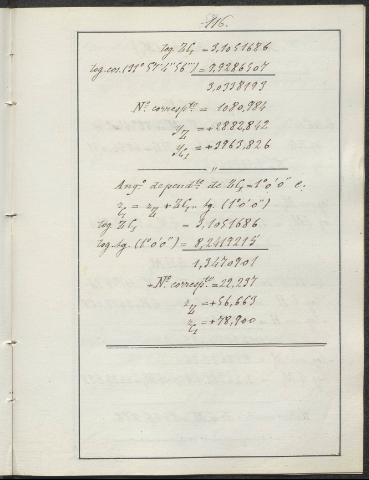 116.
log. ZC₁ = 3,1051686
log. cos. (31° 57' 4" 56''') = 9,9286507
3,0338193
N.º correspte = 1080,984
yZ = +2882,842
yC₁ = +3963,826
"
Ang.º dependte de ZC₁ = 1° 0' 0" e.
zC₁ = zZ + ZC₁ . tg. (1° 0' 0")
log. ZC₁ = 3,1051686
log. tg. (1° 0' 0") = 8,2419215
1,3470901
N.º corresp.te = 22,237
zZ = +56,663
zC₁ = +78,900